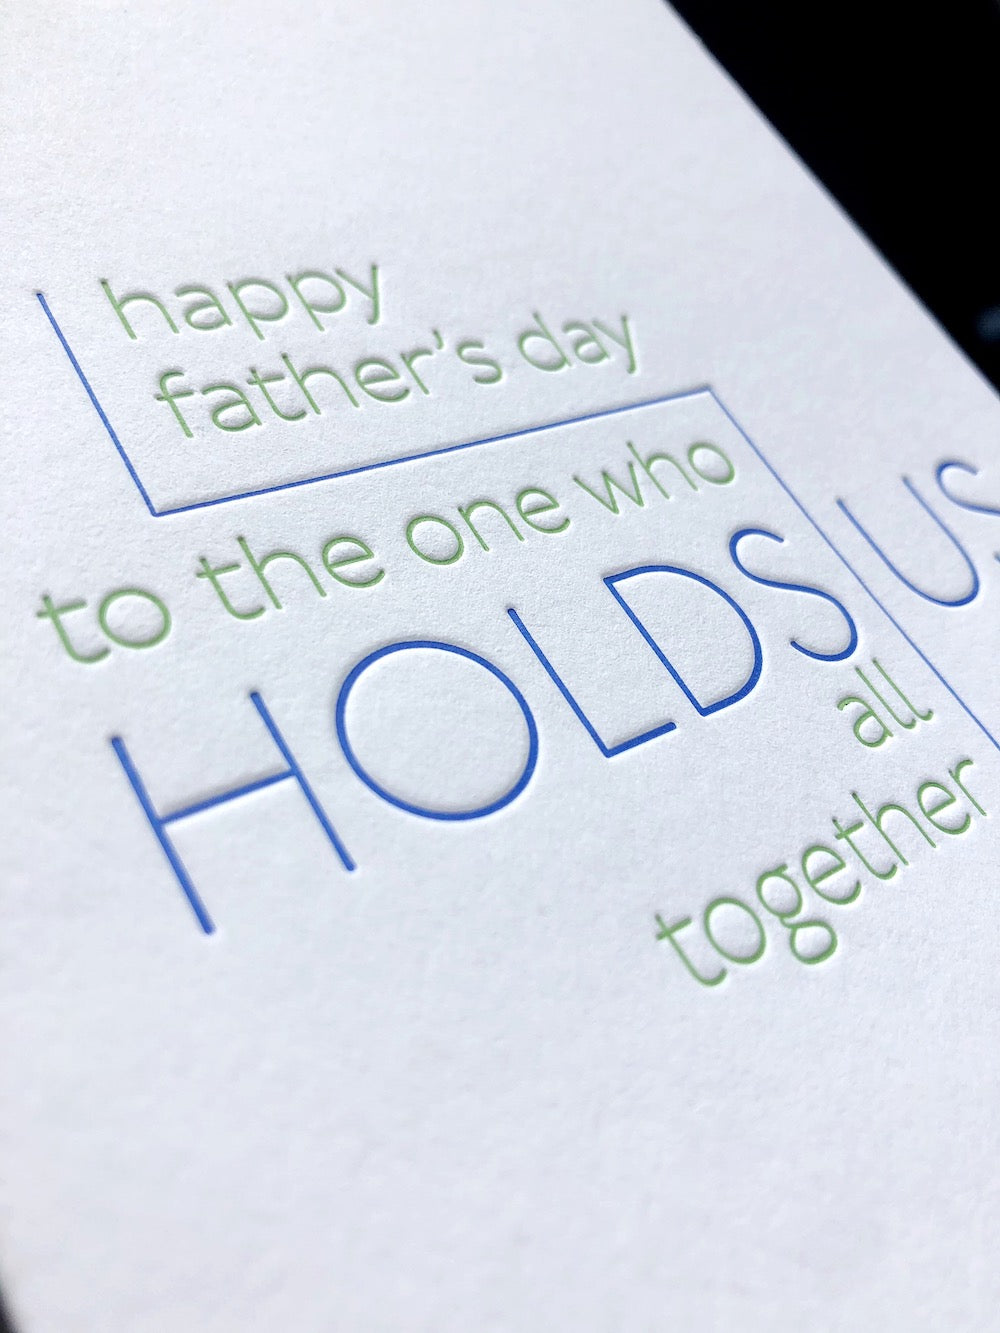 happy
father's day
to the one who
HOLDS US
all
together